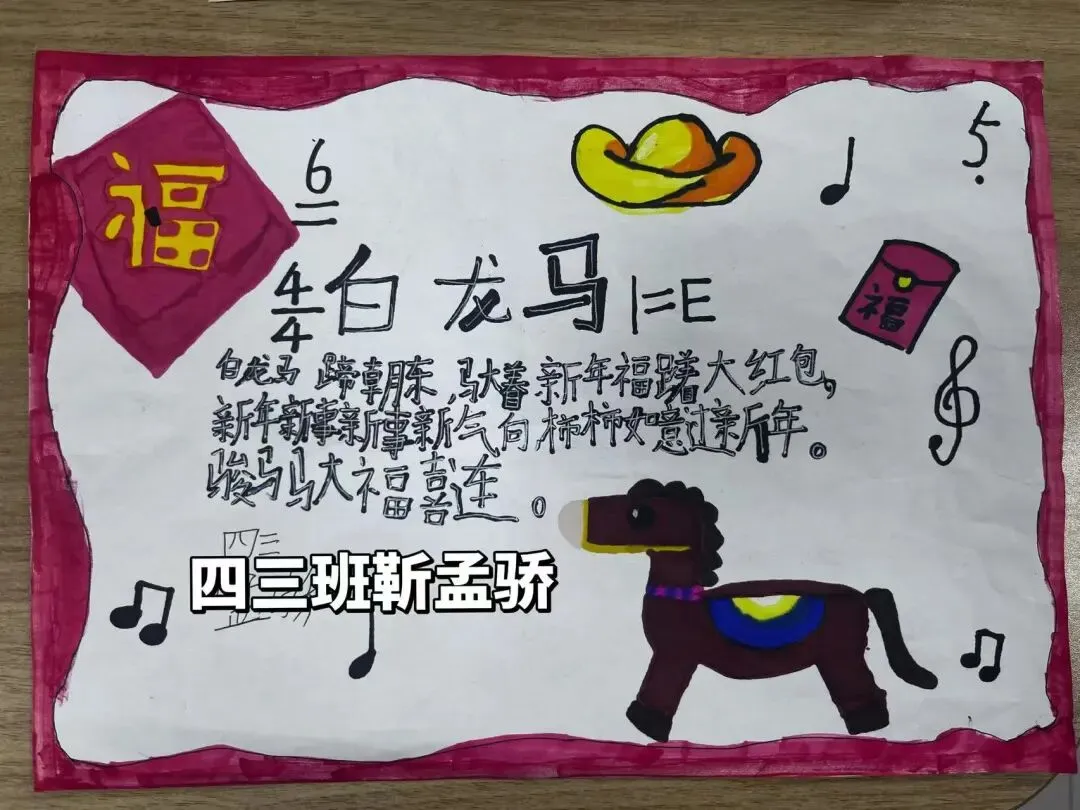 福
6
5
4
4
白龙马 1=E
福
白龙马 蹄朝东,马大着新年福蹉大红包,
新年新事新事新气向柿柿如意过新年。
骏马马大福喜连。
四三
四三班靳孟骄